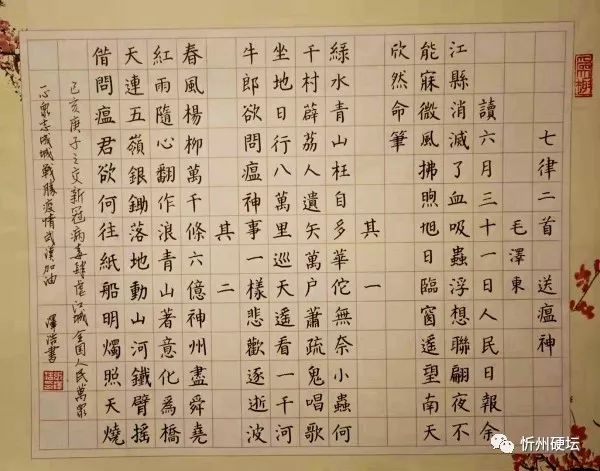 七律二首 送瘟神
毛澤東
讀六月三十一日人民日報余
江縣消滅了血吸蟲浮想聯翩夜不
能寐微風拂煦旭日臨窗遥望南天
欣然命筆
其一
綠水青山枉自多華佗無奈小蟲何
千村薜荔人遺矢萬户蕭疏鬼唱歌
坐地日行八萬里巡天遥看一千河
牛郎欲問瘟神事一樣悲歡逐逝波
其二
春風楊柳萬千條六億神州盡舜堯
紅雨隨心翻作浪青山著意化為橋
天連五嶺銀鋤落地動山河鐵臂摇
借問瘟君欲何往紙船明燭照天燒
己亥庚子之交新冠病毒肆虐江城全国人民萬眾
一心眾志成城戰勝疫情武漢加油 浩書
忻州硬坛